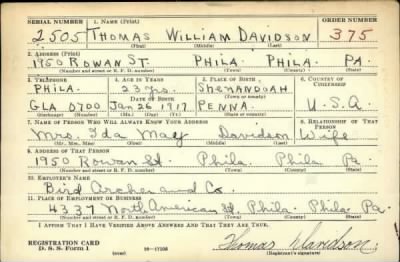 SERIAL NUMBER 1. NAME (Print) ORDER NUMBER
2505 THOMAS WILLIAM DAVIDSON 375
(First) (Middle) (Last)
2. ADDRESS (Print)
1950 ROWAN ST. PHILA. PHILA. PA.
(Number and street or R. F. D. number) (Town) (County) (State)
3. TELEPHONE 4. AGE IN YEARS 5. PLACE OF BIRTH 6. COUNTRY OF CITIZENSHIP
PHILA. 23 yrs. SHENANDOAH
DATE OF BIRTH
GLA 0700 Jan 26 1917 PENNA. U.S.A.
(Exchange) (Number) (Mo.) (Day) (Yr.) (State or country)
7. NAME OF PERSON WHO WILL ALWAYS KNOW YOUR ADDRESS 8. RELATIONSHIP OF THAT PERSON
Mrs. Ida May Davidson Wife
(Mr., Mrs., Miss) (First) (Middle) (Last)
9. ADDRESS OF THAT PERSON
1950 Rowan St. Phila. Phila. Pa.
(Number and street or R. F. D. number) (Town) (County) (State)
10. EMPLOYER'S NAME
Bird Archer and Co.
11. PLACE OF EMPLOYMENT OR BUSINESS
4337 North American St. Phila. Phila. Pa.
(Number and street or R. F. D. number) (Town) (County) (State)
I AFFIRM THAT I HAVE VERIFIED ABOVE ANSWERS AND THAT THEY ARE TRUE.
REGISTRATION CARD
D. S. S. Form 1 16—17105 Thomas Davidson
(Registrant's signature)